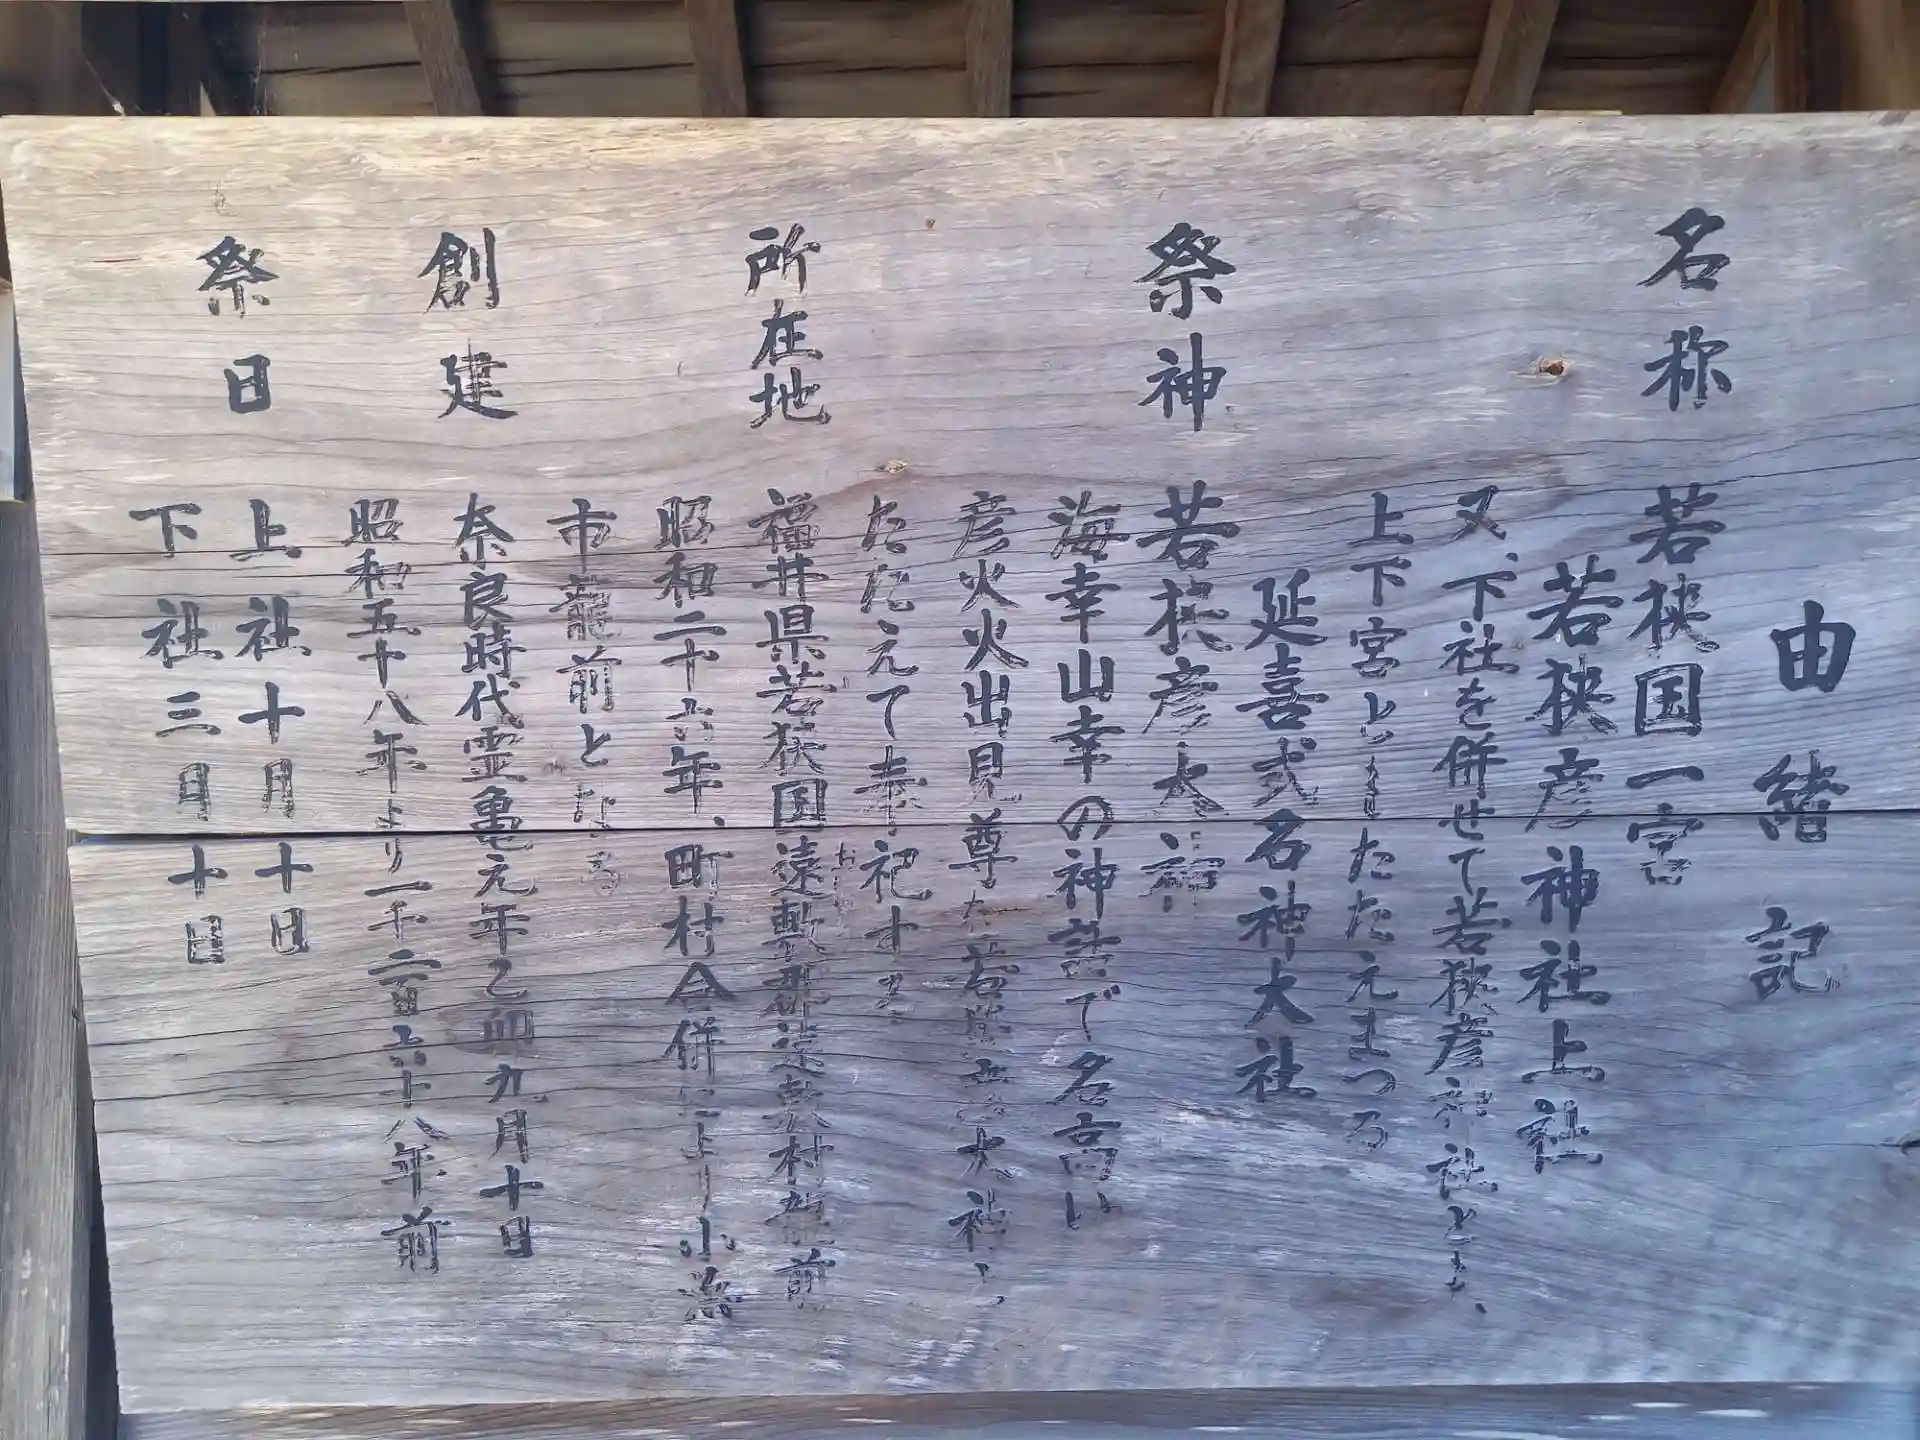 由緒記
名称
若狭国一宮
若狭彦神社上社
又、下社を併せて若狭彦神社とも、
上下宮ともたたえまつる
延喜式名神大社
祭神
若狭彦大神
海幸山幸の神話で名高い
彦火火出見尊を若狭彦大神と
たたえて奉祀する
所在地
福井県若狭国遠敷郡遠敷村龍前
昭和二十六年、町村合併により小浜
市龍前となる
創建
奈良時代霊亀元年乙卯九月十日
昭和五十八年より一千二百六十八年前
祭日
上社十月十日
下社三月十日